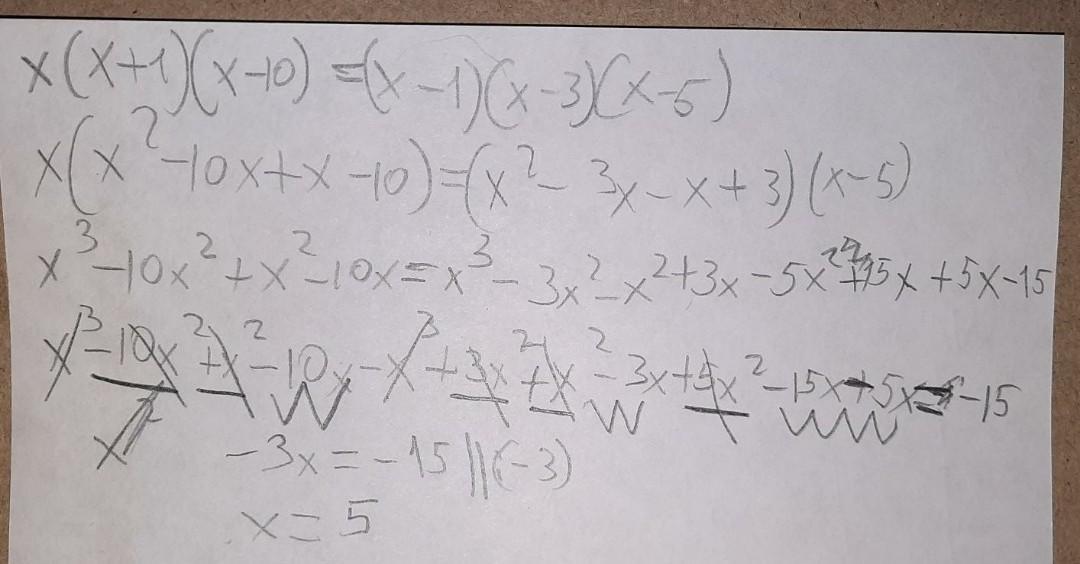 x(x+1)(x-10) = (x-1)(x-3)(x-5)
x(x²-10x+x-10)=(x²-3x-x+3)(x-5)
x³-10x²+x²-10x=x³-3x²-x²+3x-5x²+15x+5x-15
x³-10x²+x²-10x-x³+3x²+x²-3x+5x²-15x-5x=-15
-3x=-15||(-3)
x=5